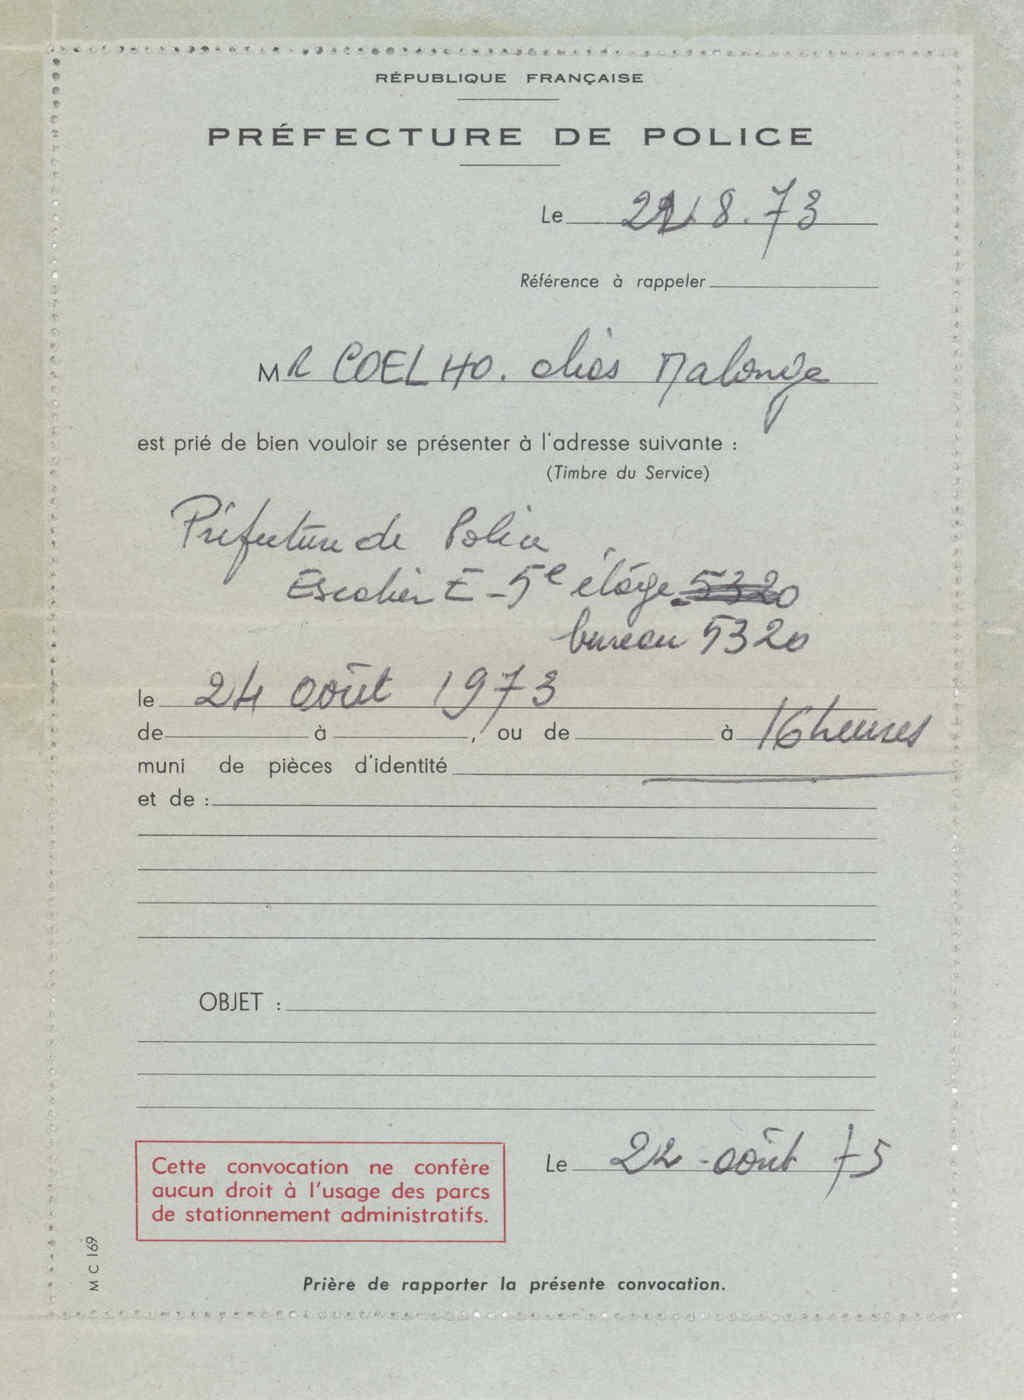 RÉPUBLIQUE FRANÇAISE
PRÉFECTURE DE POLICE
Le 22.8.73
Référence à rappeler
MR COELHO. alias Malonga
est prié de bien vouloir se présenter à l'adresse suivante :
(Timbre du Service)
Préfecture de Police
Escalier E - 5e étage 5320
bureau 5320
le 24 août 1973
de à , ou de à 16 heures
muni de pièces d'identité
et de :
OBJET :
Le 22 - août 75
Cette convocation ne confère
aucun droit à l'usage des parcs
de stationnement administratifs.
M C 169
Prière de rapporter la présente convocation.